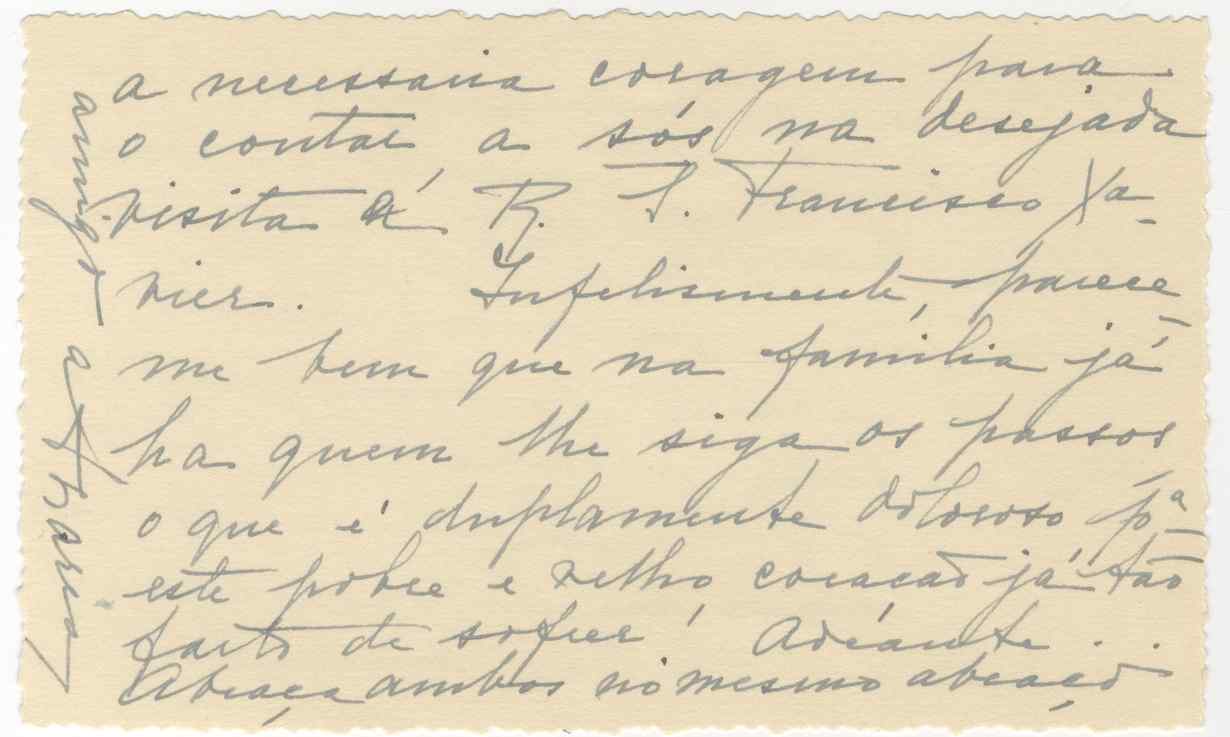 a necessaria coragem para
o contar, a sós na desejada
visita á R. S. Francisco Xa-
vier. Infelismente, parece-
me bem que na família já
ha quem lhe siga os passos
o que é duplamente doloroso pª
este pobre e velho coracão já tão
farto de sofrer! Adeante..
Abraça ambos no mesmo abraço
amigo o